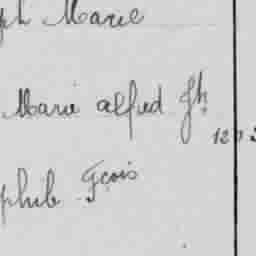 ph Marie
Marie alfred Jh
120
phib Fçois